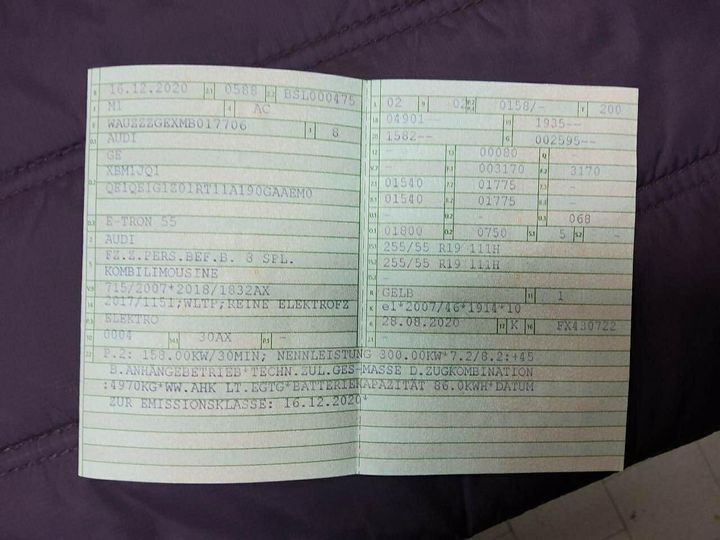 B 16.12.2020 2.1 0588 2.2 BSL000475
J M1 4 AC
E WAUZZZGEXMB017706 3 8
D.1 AUDI
GE
XBM1JQ1
D.2 QE1QEIG1Z01RT11A190GAAEM0
D.3 E-TRON 55
2 AUDI
5 FZ.Z.PERS.BEF.B. 8 SPL.
KOMBILIMOUSINE
V.9 715/2007*2018/1832AX
14 2017/1151;WLTP;REINE ELEKTROFZ
P.3 ELEKTRO
10 0004 14.1 30AX P.1 -
L 02 9 02 P.2 P.4 0158/- T 200
18 04901-- 19 1935--
20 1582-- G 002595--
12 - 13 00080 Q -
V.7 - F.1 003170 F.2 3170
7.1 01540 7.2 01775 7.3 -
8.1 01540 8.2 01775 8.3 -
U.1 - U.2 - U.3 068
O.1 01800 O.2 0750 S.1 5 S.2 -
15.1 255/55 R19 111H
15.2 255/55 R19 111H
15.3 -
R GELB 11 1
K e1*2007/46*1914*10
6 28.08.2020 17 K 16 FX430722
21 -
22 P.2: 158.00KW/30MIN; NENNLEISTUNG 300.00KW*7.2/8.2:+45
B.ANHÄNGEBETRIEB*TECHN.ZUL.GES-MASSE D.ZUGKOMBINATION
:4970KG*WW.AHK LT.EGTG*BATTERIEKAPAZITÄT 86.0KWH*DATUM
ZUR EMISSIONSKLASSE: 16.12.2020*